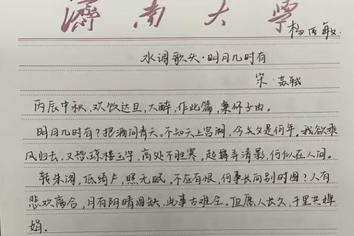 濟南大學
水调歌头·明月几时有
宋·苏轼
丙辰中秋，欢饮达旦，大醉，作此篇，兼怀子由。
明月几时有？把酒问青天。不知天上宫阙，今夕是何年。我欲乘
风归去，又恐琼楼玉宇，高处不胜寒，起舞弄清影，何似在人间。
转朱阁，低绮户，照无眠，不应有恨，何事长向别时圆？人有
悲欢离合，月有阴晴圆缺，此事古难全。但愿人长久，千里共婵
娟。